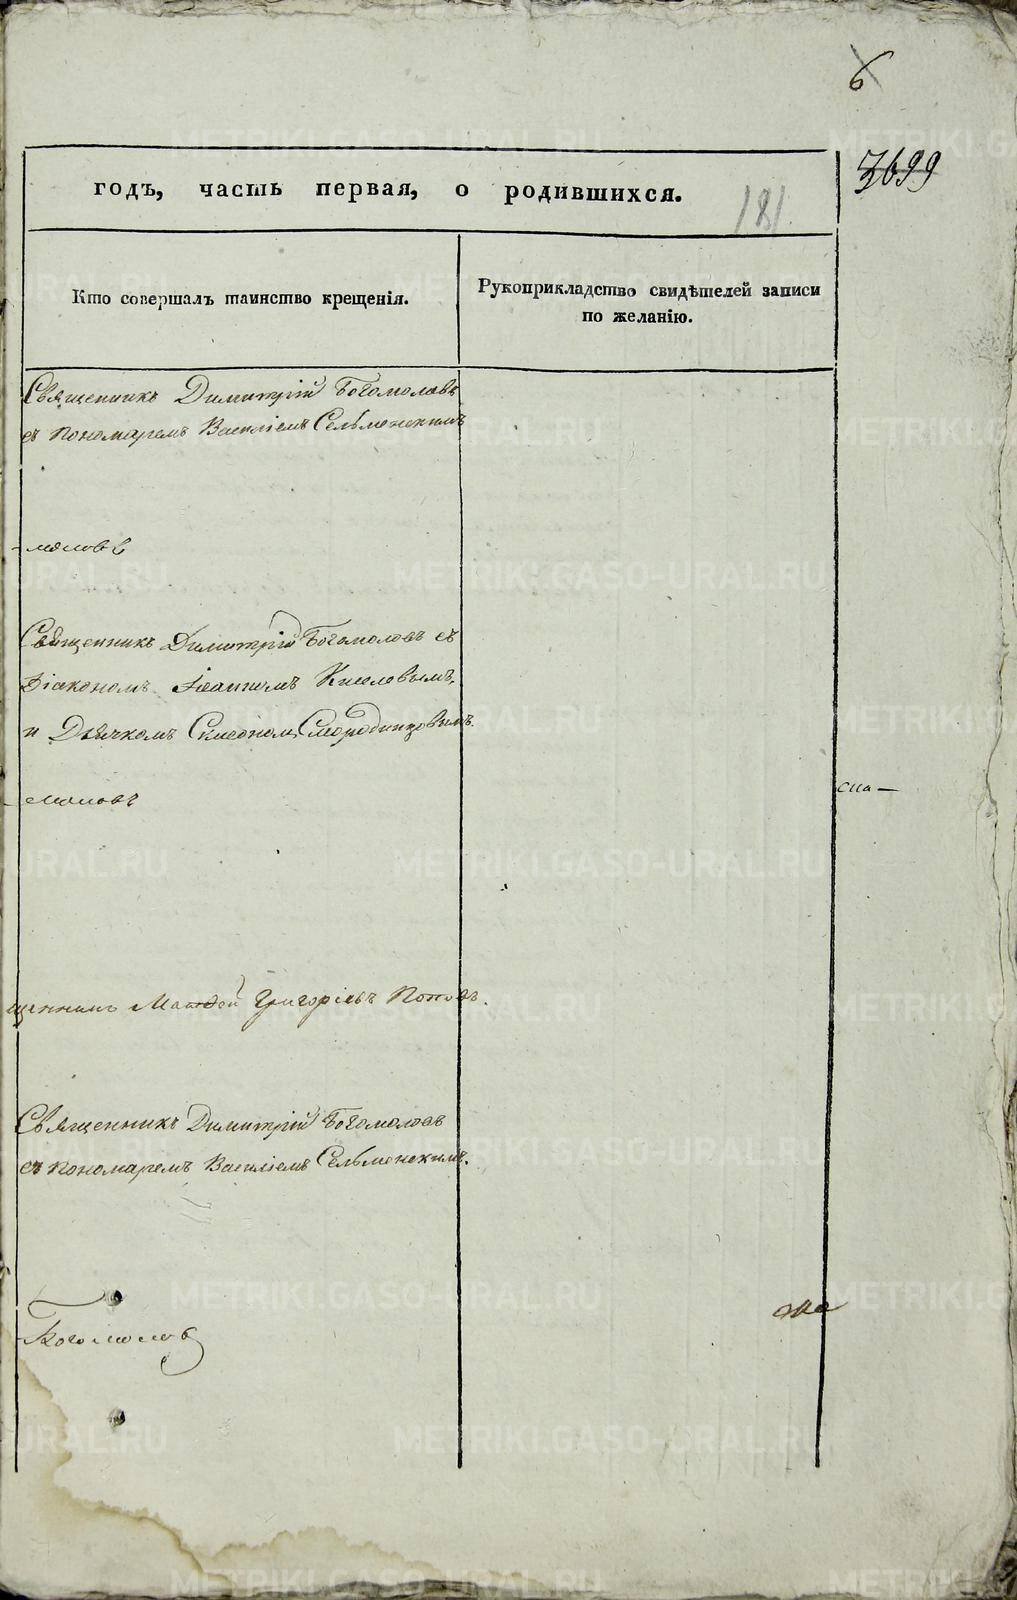 6
3699
годъ, часть первая, о родившихся.
181
Кто совершалъ таинство крещенія.
Рукоприкладство свидѣтелей записи
по желанію.
Священникъ Димитрій Богомоловъ
съ пономаремъ Василіемъ Сельменскимъ
-моловъ
Священникъ Димитрій Богомоловъ съ
Діакономъ Іоанномъ Киселовымъ,
и Дьячкомъ Симеономъ Смородинцовымъ.
-моловъ
сма-
щенникъ Матѳей Григоріевъ Поповъ.
Священникъ Димитрій Богомоловъ
съ пономаремъ Василіемъ Сельменскимъ.
Богомолов
METRIKI.GASO-URAL.RU